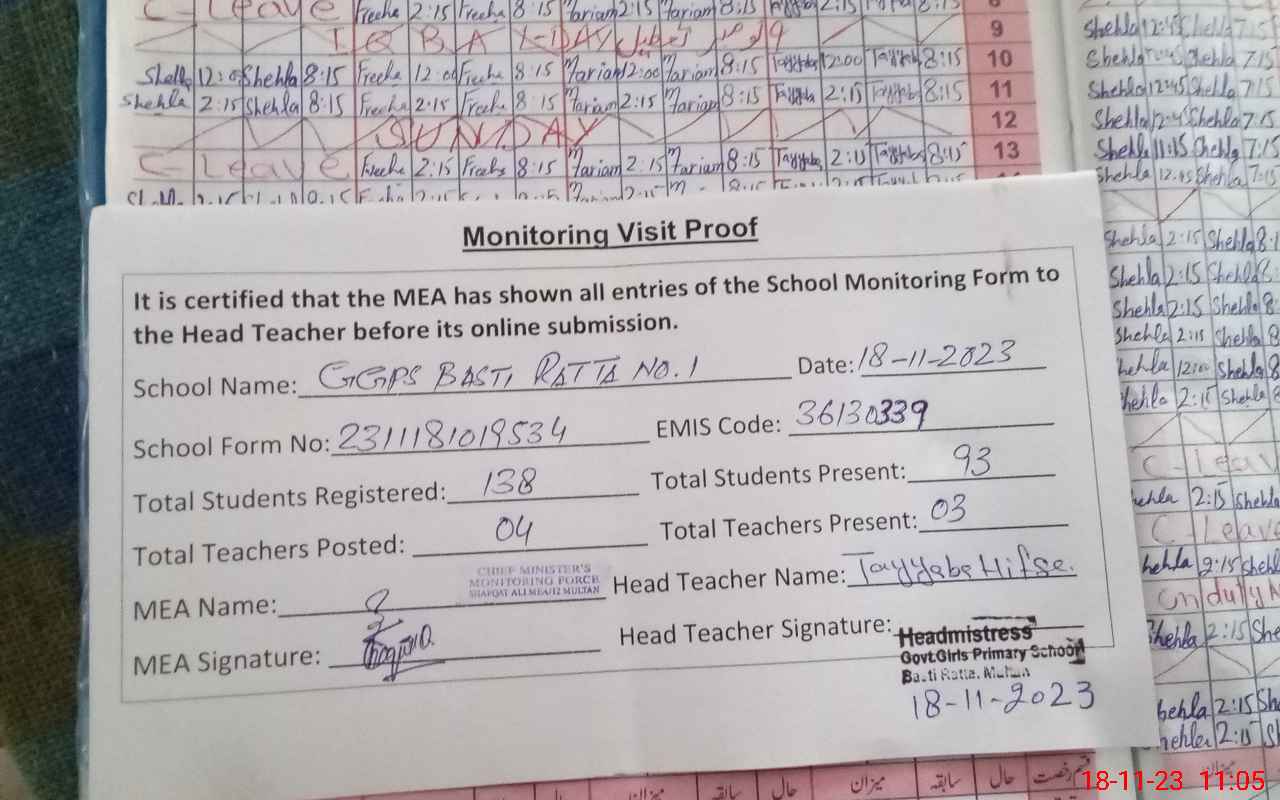 C-Leave Freeha 2:15 Freeha 8:15 Mariam 2:15 Mariam 8:15
IQBAL-DAY تعطیل 9 نومبر 9
Shehla Shehla 8:15 Freeha 12:00 Freeha 8:15 Mariam 12:00 Mariam 8:15 Tayyaba 12:00 Tayyaba 8:15 10
Shehla 2:15 Shehla 8:15 Freeha 2:15 Freeha 8:15 Mariam 2:15 Mariam 8:15 Tayyaba 2:15 Tayyaba 8:15 11
SUNDAY 12
C-Leave Freeha 2:15 Freeha 8:15 Mariam 2:15 Mariam 8:15 Tayyaba 2:15 Tayyaba 8:15 13
Shehla 12:45 Shehla 7:15
Shehla 7:15
Shehla 12:45 Shehla 7:15
Shehla 12:45 Shehla 7:15
Shehla 11:15 Shehla 7:15
Shehla 12:45 Shehla 7:15
Shehla 2:15 Shehla 8:1
Shehla 2:15 Shehla 8
Shehla 2:15 Shehla 8
Shehla 2:15 Shehla 8
hehla 12:00 Shehla 8
hehla 2:15 Shehla 8
C-Leav
hehla 2:15 Shehla
C-Leave
hehla 2:15 Shehl
On duty
hehla 2:15 She
hehla 2:15 Sh
hehla 2:15 S
Monitoring Visit Proof
It is certified that the MEA has shown all entries of the School Monitoring Form to
the Head Teacher before its online submission.
School Name: GGPS BASTI RATTA NO.1 Date: 18-11-2023
School Form No: 2311181019534 EMIS Code: 36130339
Total Students Registered: 138 Total Students Present: 93
Total Teachers Posted: 04 Total Teachers Present: 03
CHIEF MINISTER'S
MONITORING FORCE
SHAFQAT ALI MEA/12 MULTAN
MEA Name: Head Teacher Name: Tayyaba Hifsa.
MEA Signature: Head Teacher Signature:
Headmistress
Govt.Girls Primary School
Basti Ratta, Multan
18-11-2023
میزان سابقہ حال میزان سابقہ حال قسم رخصت میزان
18-11-23 11:05